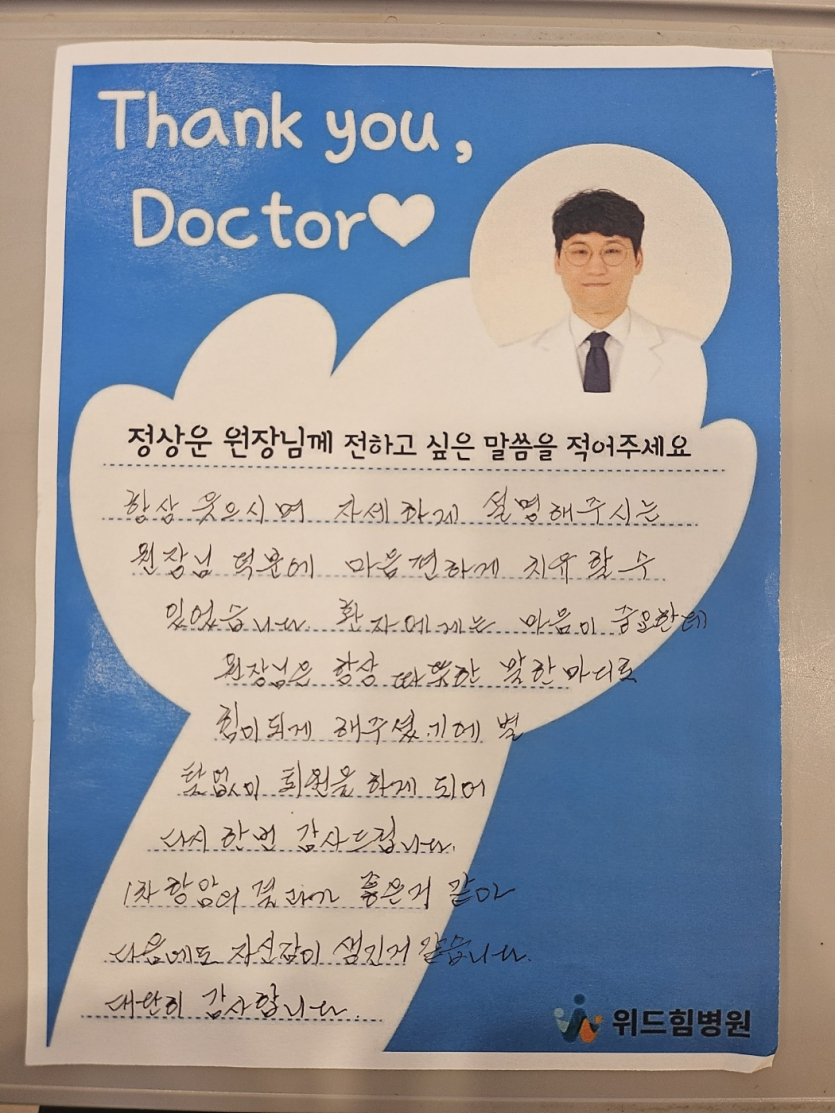 Thank you,
Doctor♥
정상운 원장님께 전하고 싶은 말씀을 적어주세요
항상 웃으시며 자세하게 설명해주시는
원장님 덕분에 마음편하게 치유할 수
있었습니다. 환자에게는 마음이 중요한데
원장님은 항상 따뜻한 말한마디로
힘이되게 해주셨기에 별
탈없이 퇴원을 하게 되어
다시 한번 감사드립니다.
1차 항암의 결과가 좋은거 같아
다음에도 자신감이 생긴거 같습니다.
대단히 감사합니다.
위드힘병원